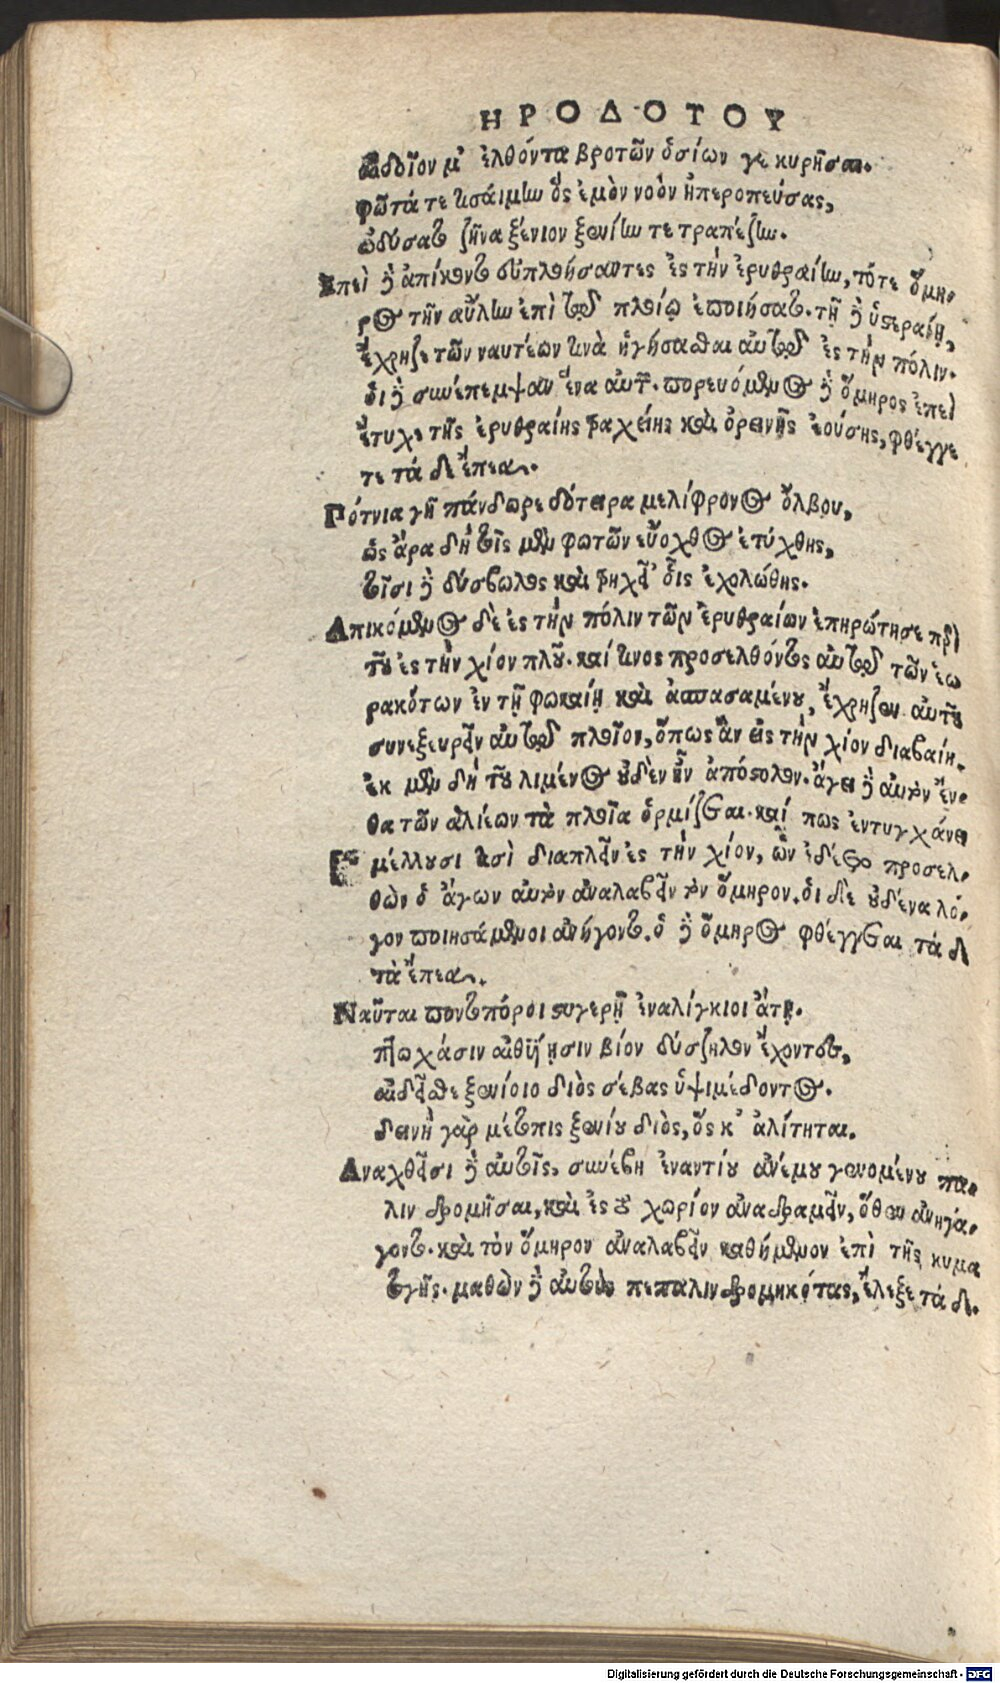 ΗΡΟΔΟΤΟΥ
αἰδοῖον μ' ἐλθόντα βροτῶν ὁσίων γε κυρῆσαι.
φῶτά τε τισαίμην ὃς ἐμὸν νοὸν ἠπεροπεύσας,
ὠδύσατο ζῆνα ξένιον ξενίην τε τραπέζην.
Επεὶ δὲ ἀπίκοντο εὐπλοήσαντες ἐς τὴν ἐρυθραίην, τότε ὅμη-
ρος τὴν αὖλιν ἐπὶ τῷ πλοίῳ ἐποιήσατο. τῇ δὲ ὑστεραίῃ,
ἔχρηζε τῶν ναυτέων τινὰ ἡγήσασθαι αὐτῷ ἐς τὴν πόλιν.
οἱ δὲ συνέπεμψαν ἕνα αὐτῶν. πορευόμενος δὲ ὅμηρος ἐπεὶ
ἔτυχε τῆς ἐρυθραίης τραχείης καὶ ὀρεινῆς ἐούσης, φθέγγε
τε τά δε ἔπεα.
Πότνια γῆ πάνδωρε δότειρα μελίφρονος ὄλβου,
ὡς ἄρα δὴ τοῖς μὲν φωτῶν εὔοχθος ἐτύχθης,
τοῖσι δὲ δύσβωλος καὶ τρηχεῖ' οἷς ἐχολώθης.
Απικόμενος δὲ ἐς τὴν πόλιν τῶν ἐρυθραίων ἐπηρώτησε περὶ
τοῦ ἐς τὴν χίον πλοῦ. καί τινος προσελθόντος αὐτῷ τῶν ἑω
ρακότων ἐν τῇ φωκαίῃ καὶ ἀσπασαμένου, ἔχρηζεν αὐτοῦ
συνεξευρεῖν αὐτῷ πλοῖον, ὅπως ἂν εἰς τὴν χίον διαβαίη.
ἐκ μὲν δὴ τοῦ λιμένος οὐδὲν ἦν ἀπόστολον. ἄγει δὲ αὐτὸν ἔν-
θα τῶν ἁλιέων τὰ πλοῖα ὁρμίζεται. καί πως ἐντυγχάνει
μέλλουσί τισὶ διαπλεῖν ἐς τὴν χίον, ὧν ἐδέετο προσελ-
θὼν ὁ ἄγων αὐτὸν ἀναλαβεῖν τὸν ὅμηρον. οἱ δὲ οὐδένα λό-
γον ποιησάμενοι ἀνήγοντο. ὁ δὲ ὅμηρος φθέγγεται τά δε
τὰ ἔπεα.
Ναῦται ποντοπόροι στυγερῇ ἐναλίγκιοι ἄτῃ.
πτωχάσιν αἰθυίῃσιν βίον δύσζηλον ἔχοντες,
αἰδεῖσθε ξενίοιο διὸς σέβας ὑψιμέδοντος.
δεινὴ γὰρ μέτοπις ξενίου διὸς, ὅς κ' ἀλίτηται.
Αναχθεῖσι δὲ αὐτοῖς, συνέβη ἐναντίου ἀνέμου γενομένου πα-
λιν δρομῆσαι, καὶ ἐς τὸ χωρίον ἀναδραμεῖν, ὅθεν ἀνηγά-
γοντο. καὶ τὸν ὅμηρον ἀναλαβεῖν καθήμενον ἐπὶ τῆς κυμα
τωγῆς. μαθὼν δὲ αὐτοὺς πεπαλινδρομηκότας, ἔλεξε τά δε.
Digitalisierung gefördert durch die Deutsche Forschungsgemeinschaft - DFG